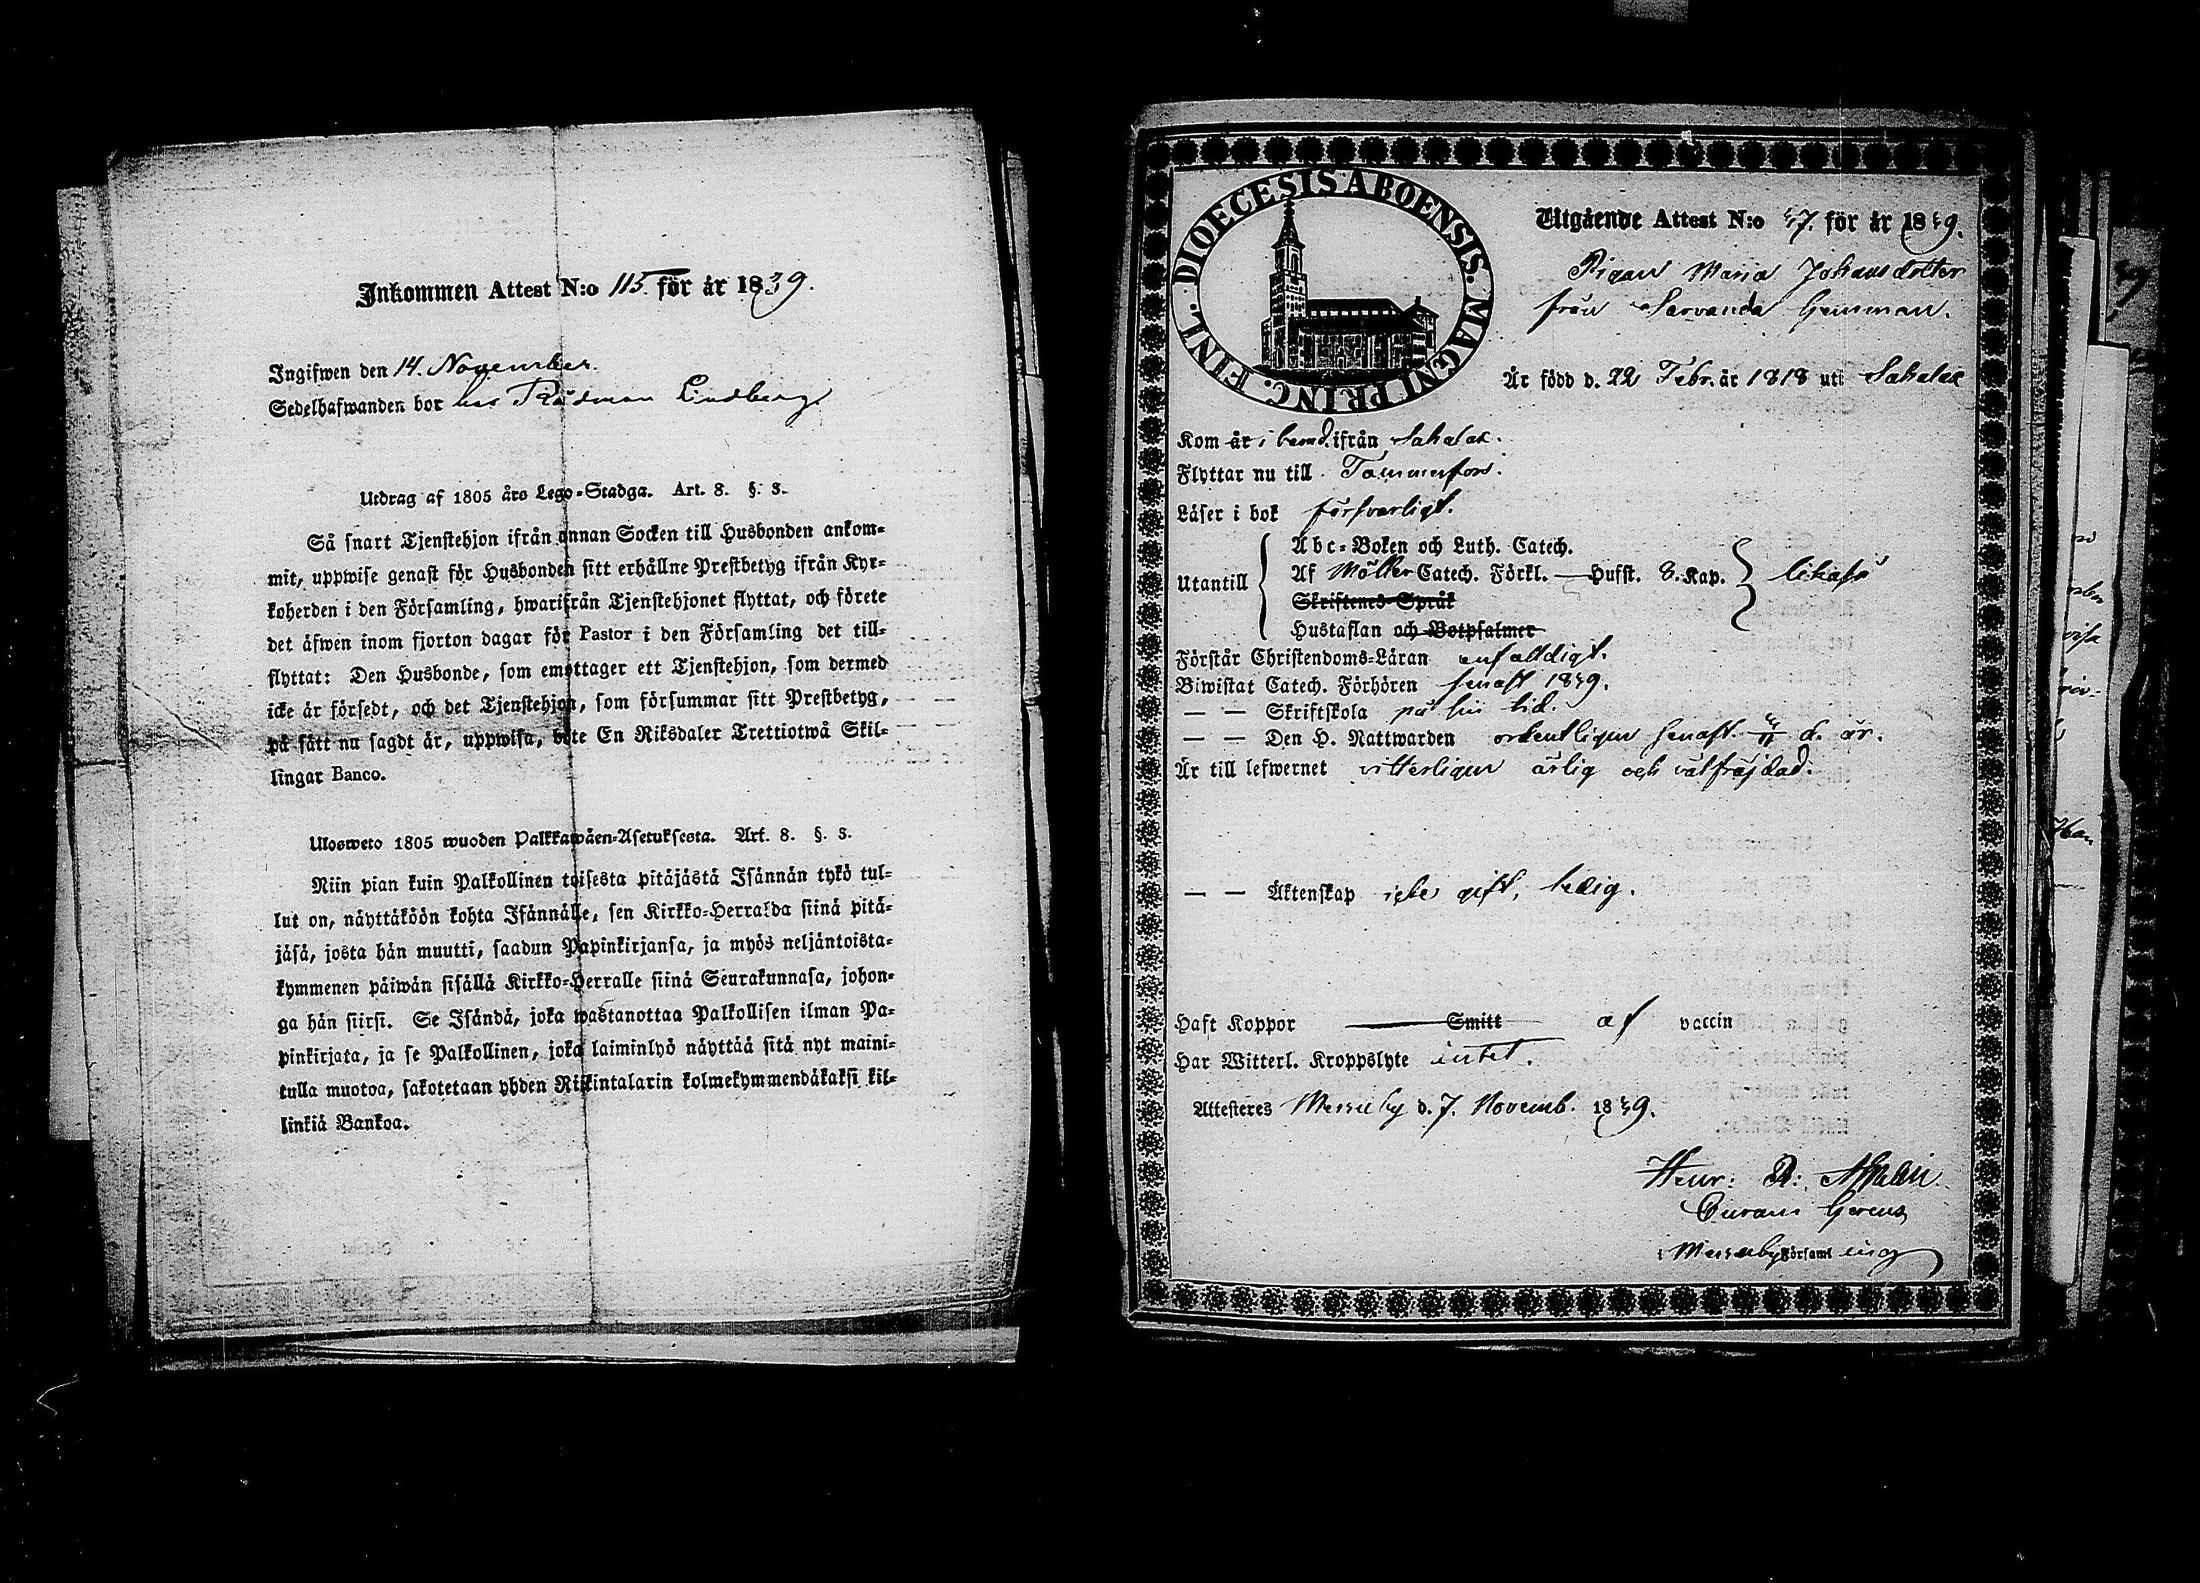 Inkommen Attest N:o 115. för år 1839.
Ingifwen den 14. November.
Sedelhafwanden bor hos Rådman Lindberg
Utdrag af 1805 års Lego-Stadga. Art. 8. §. 3.
Så snart Tjenstehjon ifrån annan Socken till Husbonden ankom-
mit, uppwise genast för Husbonden sitt erhållne Prestbetyg ifrån Kyr-
koherden i den Församling, hwarifrån Tjenstehjonet flyttat, och förete
det äfwen inom fjorton dagar för Pastor i den Församling det till-
flyttat: Den Husbonde, som emottager ett Tjenstehjon, som dermed
icke är försedt, och det Tjenstehjon, som försummar sitt Prestbetyg,
på sätt nu sagdt är, uppwisa, böte En Riksdaler Trettiotwå Skil-
lingar Banco.
Ulosweto 1805 wuoden Palkkawäen-Asetuksesta. Art. 8. §. 3.
Niin pian kuin Palkollinen toisesta pitäjästä Isännän tykö tul-
lut on, näyttäköön kohta Isännälle, sen Kirkko-Herralda siinä pitä-
jäsä, josta hän muutti, saadun Papinkirjansa, ja myös neljäntoista-
kymmenen päiwän sisällä Kirkko-Herralle siinä Seurakunnasa, johon-
ga hän siirsi. Se Isändä, joka wastanottaa Palkollisen ilman Pa-
pinkirjata, ja se Palkollinen, joka laiminlyö näyttää sitä nyt maini-
tulla muotoa, sakotetaan yhden Riikintalarin kolmekymmendäkaksi kil-
linkiä Bankoa.
DIOECESIS ABOENSIS. MAGNI PRINC. FINL.
Utgående Attest N:o 47. för år 1839.
Pigan Maria Johansdotter
från Sarvanda hemman.
Är född d. 22 Febr. år 1818 uti Sahalax
Kom år i barnd. ifrån Sahalax.
Flyttar nu till Tammerfors.
Läser i bok försvarligt.
Abc-Boken och Luth. Catech.
Utantill Af Möller Catech. Förkl. — Hufst. 8. Kap. likaså
Skriftenes Språk
Hustaflan och Botpsalmer
Förstår Christendoms-Läran enfaldigt.
Biwistat Catech. Förhören senast 1839.
— — Skriftskola på sin tid.
— — Den H. Nattwarden ordentligen senast d. år.
Är till lefwernet vitterligen ärlig och välfräjdad.
— — Äktenskap icke gift, ledig.
Haft Koppor Smitt af vaccin
Har Witterl. Kroppslyte intet.
Attesteres Messuby d. 7. Novemb. 1839.
Henr: R:
Curam Gerens
i Messuby Församling